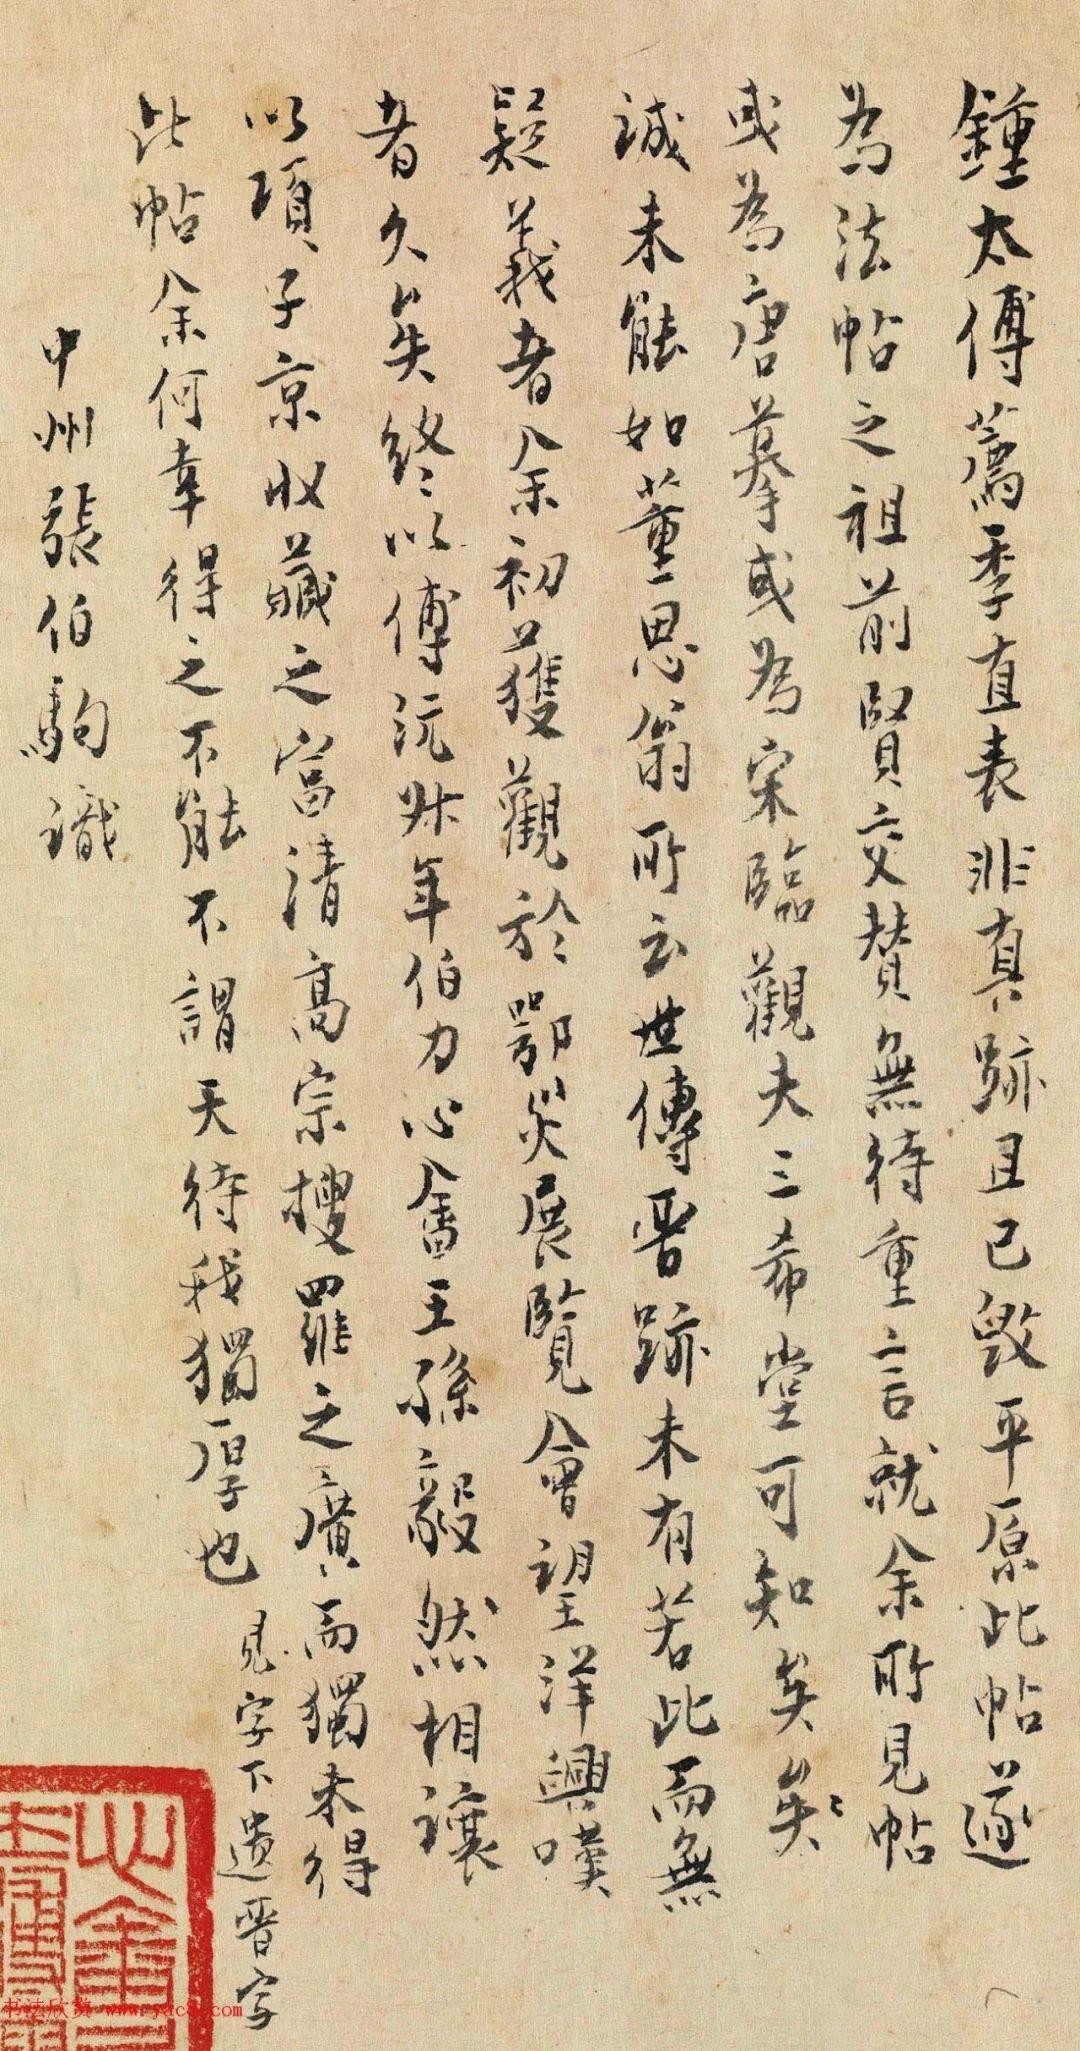 鍾太傅薦季直表非真跡且已毀平原此帖遂
為法帖之祖前賢交贊無待重言就余所見帖
或為唐摹或為宋臨觀夫三希堂可知矣矣〻
誠未能如董思翁所云世傳晉跡未有若此而無
疑義者余初獲觀於鄂災展覽會望洋興嘆
者久矣終以傅沅叔年伯力心畬王孫毅然相讓
以項子京收藏之富清高宗搜羅之廣而獨未得
此帖余何幸得之不能不謂天待我獨厚也
見字下遺晉字
中州張伯駒識
书法欣赏 www.yac8.com